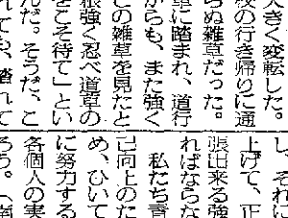 大きく変転した。
校の行き帰りに通
らぬ雑草だった。
車に踏まれ、道行
からも、また強く
この雑草を見たと
根強く忍べ道草の
をこそ待て」とい
んだ。そうだ、こ
れても、踏れて
し、それに
上げて、正
張出来る強
ればならな
私たち青
己向上のた
め、ひいて
に努力する
各個人の実
ろう。